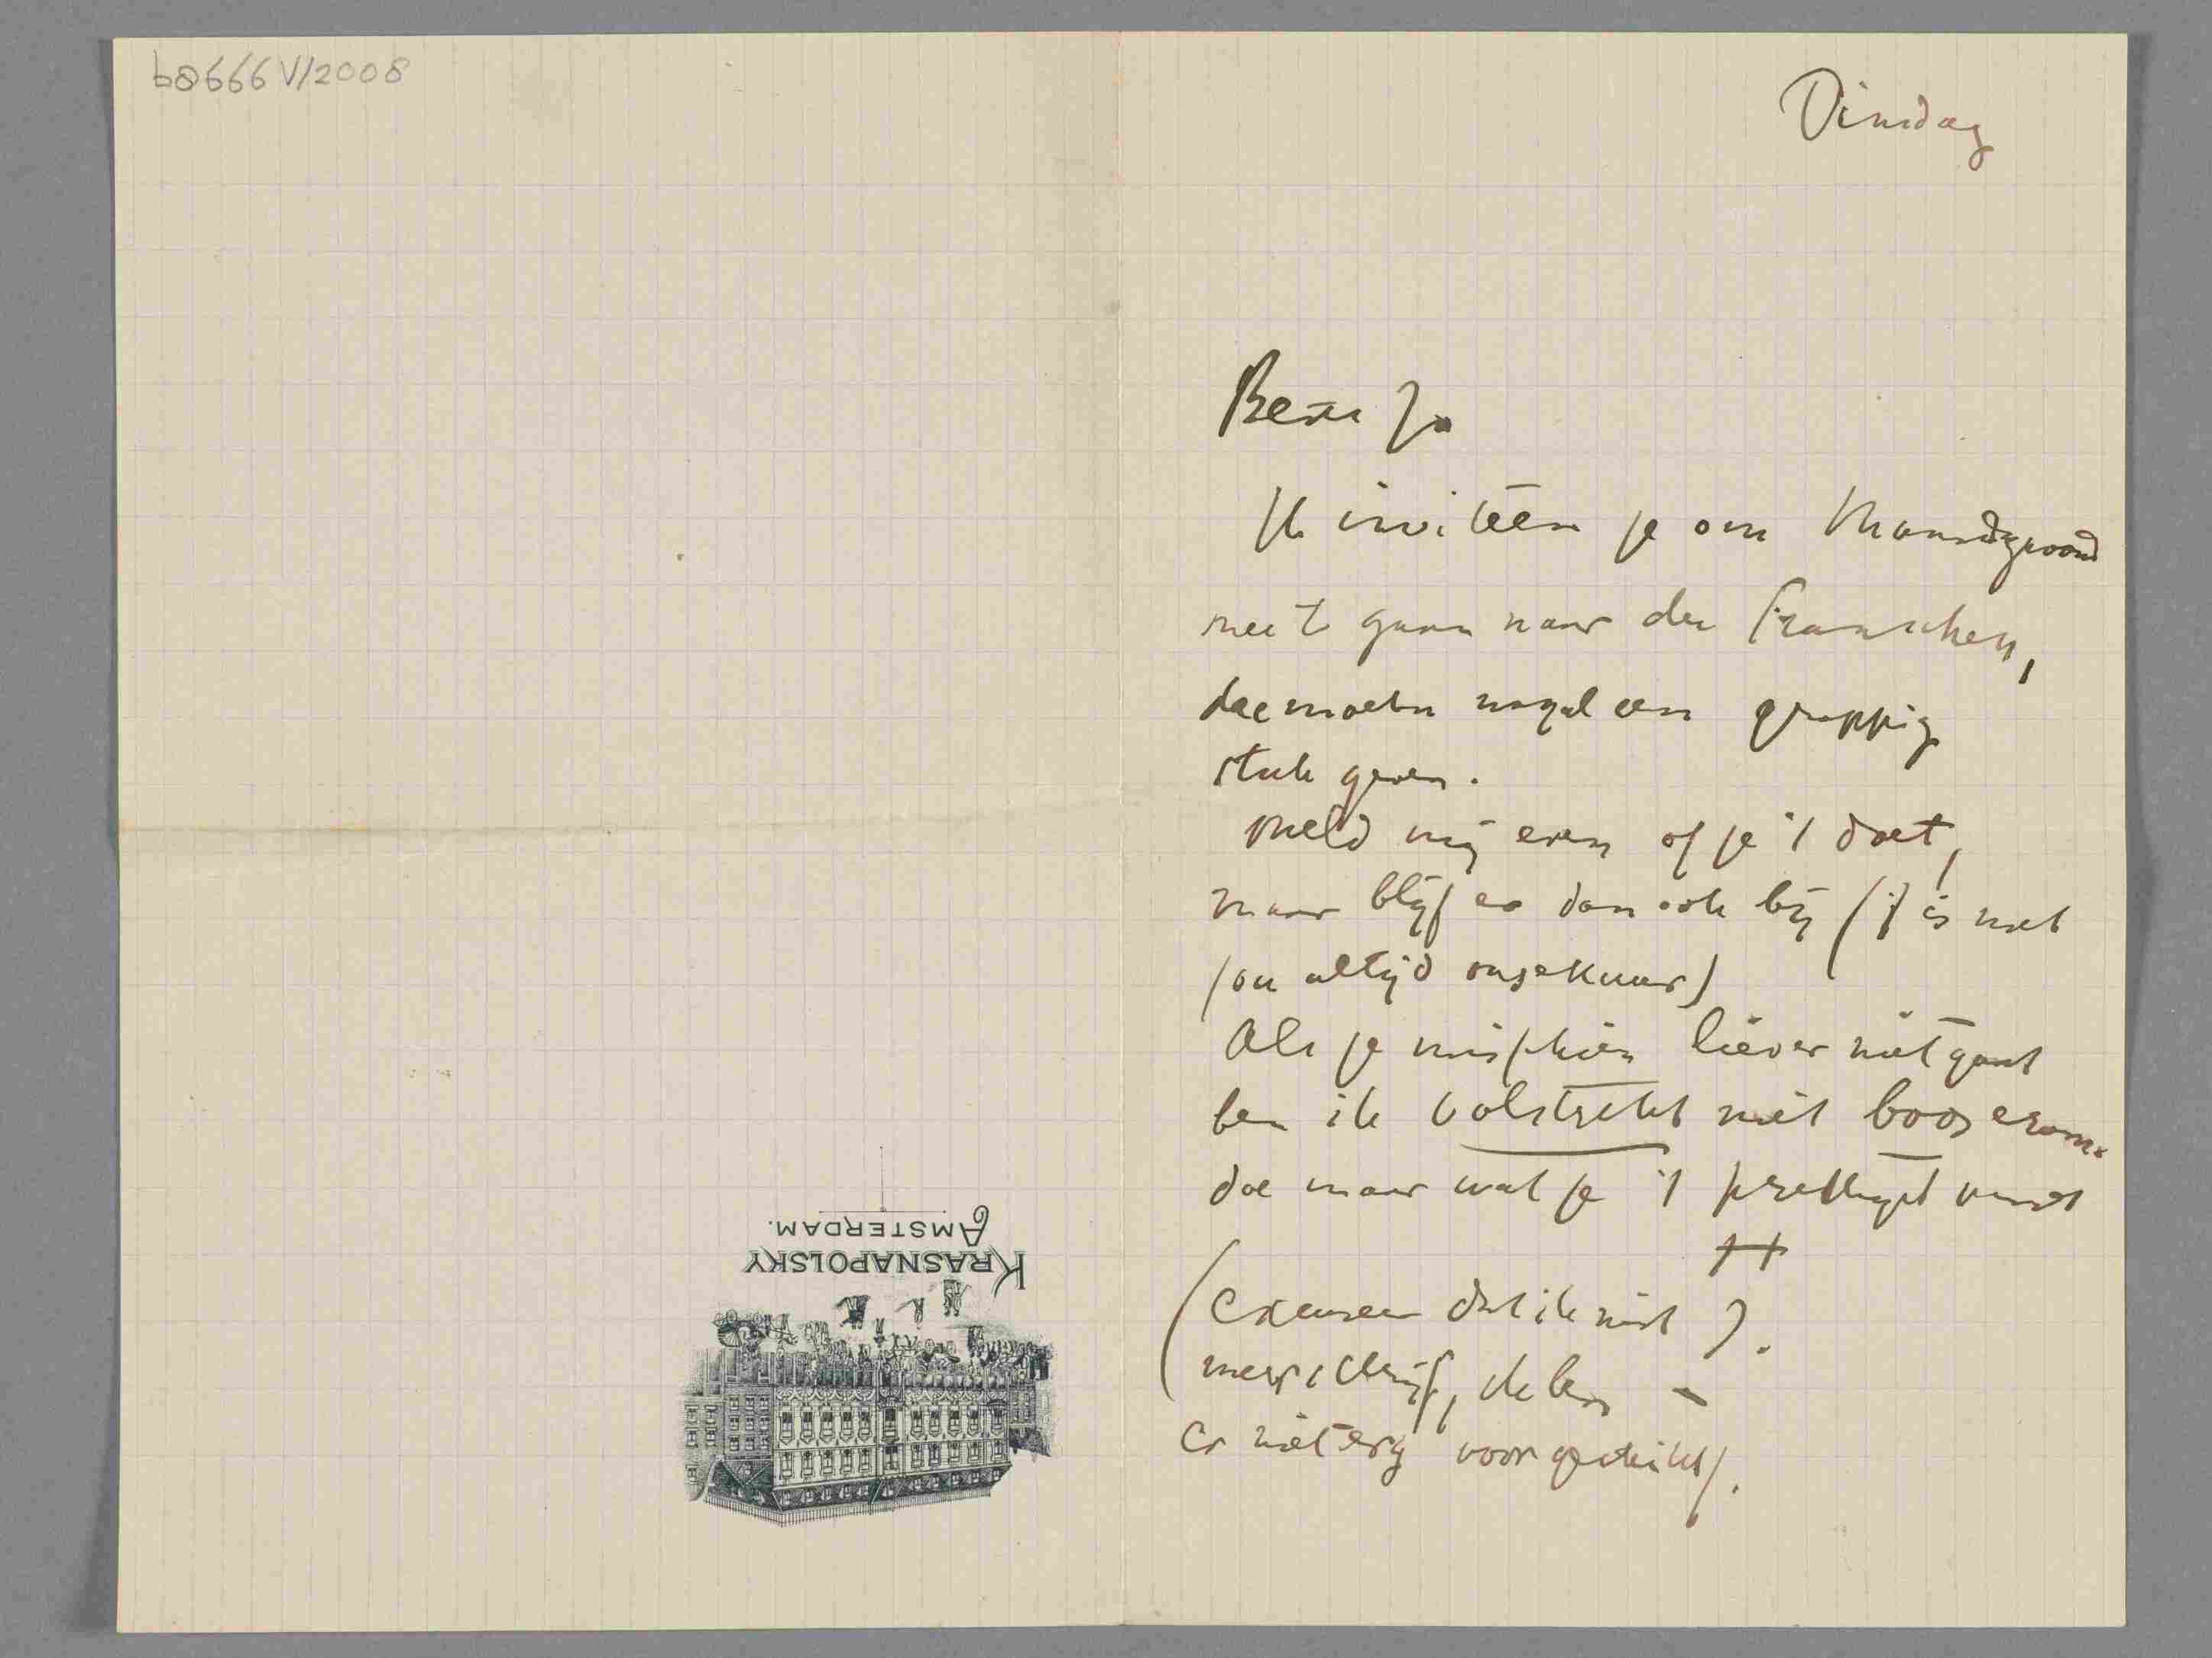 b8666 V/2008
Dinsdag
Beste Jo
Ik inviteer je om Maandagavond
mee te gaan naar de Franschen,
die moeten nogal een grappig
stuk geven.
Meld mij even of je 't doet,
maar blijf er dan ook bij (je is met
jou altijd onsekuur)
Als je misschien liever niet gaat
ben ik volstrekt niet boos erom.
doe maar wat je 't prettigst vindt
H
(excuseer dat ik niet
meer schrijf, ik ben
er niet erg voor geschikt).
KRASNAPOLSKY
AMSTERDAM.